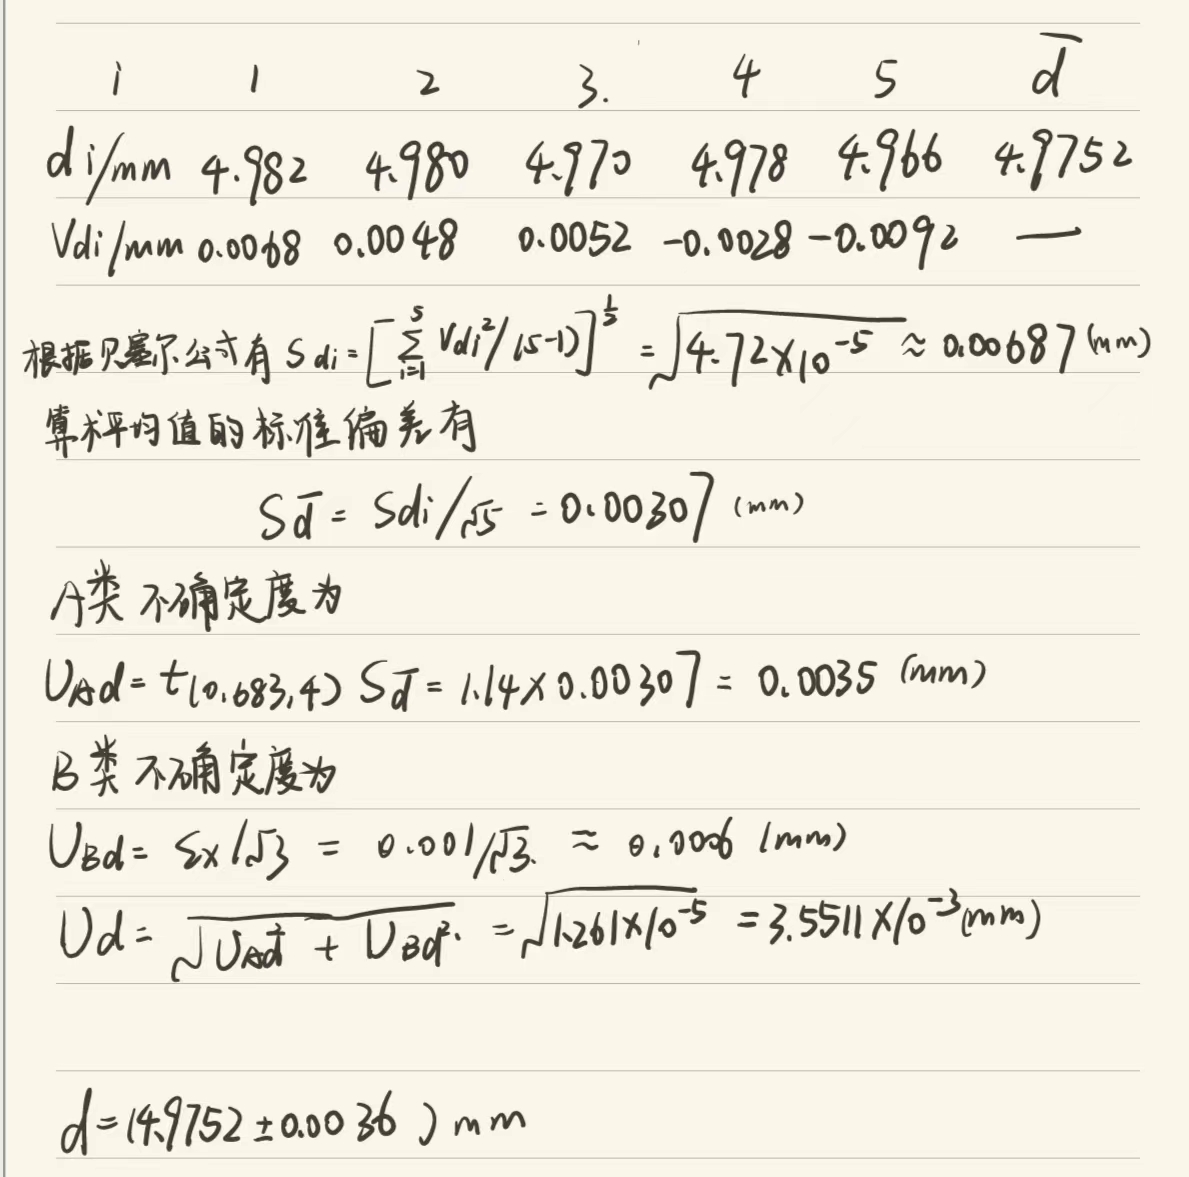 i 1 2 3. 4 5 d̅
di/mm 4.982 4.980 4.970 4.978 4.966 4.9752
Vdi/mm 0.0068 0.0048 0.0052 -0.0028 -0.0092 —
根据贝塞尔公式有 Sdi=[∑_{i=1}^{5} Vdi²/(5-1)]^{1/2} =√(4.72×10⁻⁵) ≈ 0.00687 (mm)
算术平均值的标准偏差有
Sd̅ = Sdi/√5 = 0.00307 (mm)
A类不确定度为
UAd = t(0.683,4) Sd̅ = 1.14×0.00307 = 0.0035 (mm)
B类不确定度为
UBd = εx/√3 = 0.001/√3. ≈ 0.0006 (mm)
Ud = √(UAd² + UBd²) = √(1.261×10⁻⁵) = 3.5511×10⁻³(mm)
d=(4.9752±0.0036) mm